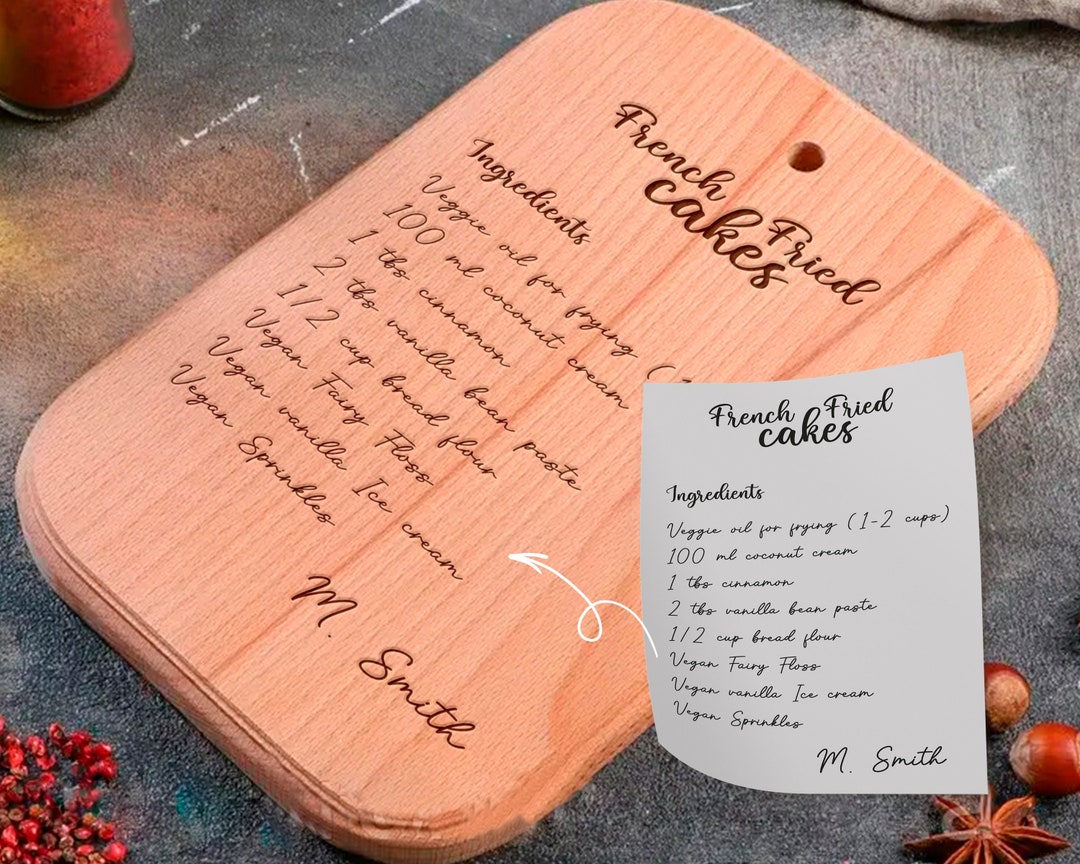 French Fried
cakes
Ingredients
Veggie oil for frying (
100 ml coconut cream
1 tbs cinnamon
2 tbs vanilla bean paste
1/2 cup bread flour
Vegan Fairy Floss
Vegan vanilla Ice cream
Vegan Sprinkles
M. Smith
French Fried
cakes
Ingredients
Veggie oil for frying (1-2 cups)
100 ml coconut cream
1 tbs cinnamon
2 tbs vanilla bean paste
1/2 cup bread flour
Vegan Fairy Floss
Vegan vanilla Ice cream
Vegan Sprinkles
M. Smith